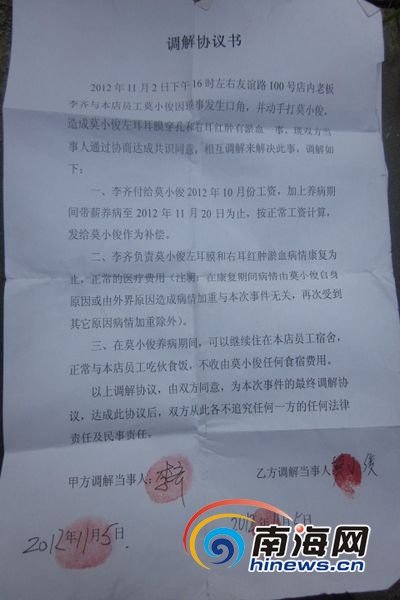 调解协议书
2012年11月2日下午16时左右友谊路100号店内老板
李齐与本店员工莫小俊因琐事发生口角，并动手打莫小俊，
造成莫小俊左耳耳膜穿孔和右耳红肿有淤血一事，现双方当
事人通过协商达成共识同意，相互调解来解决此事，调解如
下：
一、李齐付给莫小俊2012年10月份工资，加上养病期
间带薪养病至2012年11月20日为止，按正常工资计算，
发给莫小俊作为补偿。
二、李齐负责莫小俊左耳膜和右耳红肿淤血病情康复为
止，正常的医疗费用（注明：在康复期间病情由莫小俊自身
原因或由外界原因造成病情加重与本次事件无关，再次受到
其它原因病情加重除外）。
三、在莫小俊养病期间，可以继续住在本店员工宿舍，
正常与本店员工吃伙食饭，不收由莫小俊任何食宿费用。
以上调解协议，由双方同意，为本次事件的最终调解协
议，达成此协议后，双方从此各不追究任何一方的任何法律
责任及民事责任。
甲方调解当事人：李齐
乙方调解当事人 小俊
2012年11月5日.
2012年11月5日
南海网
hinews.cn